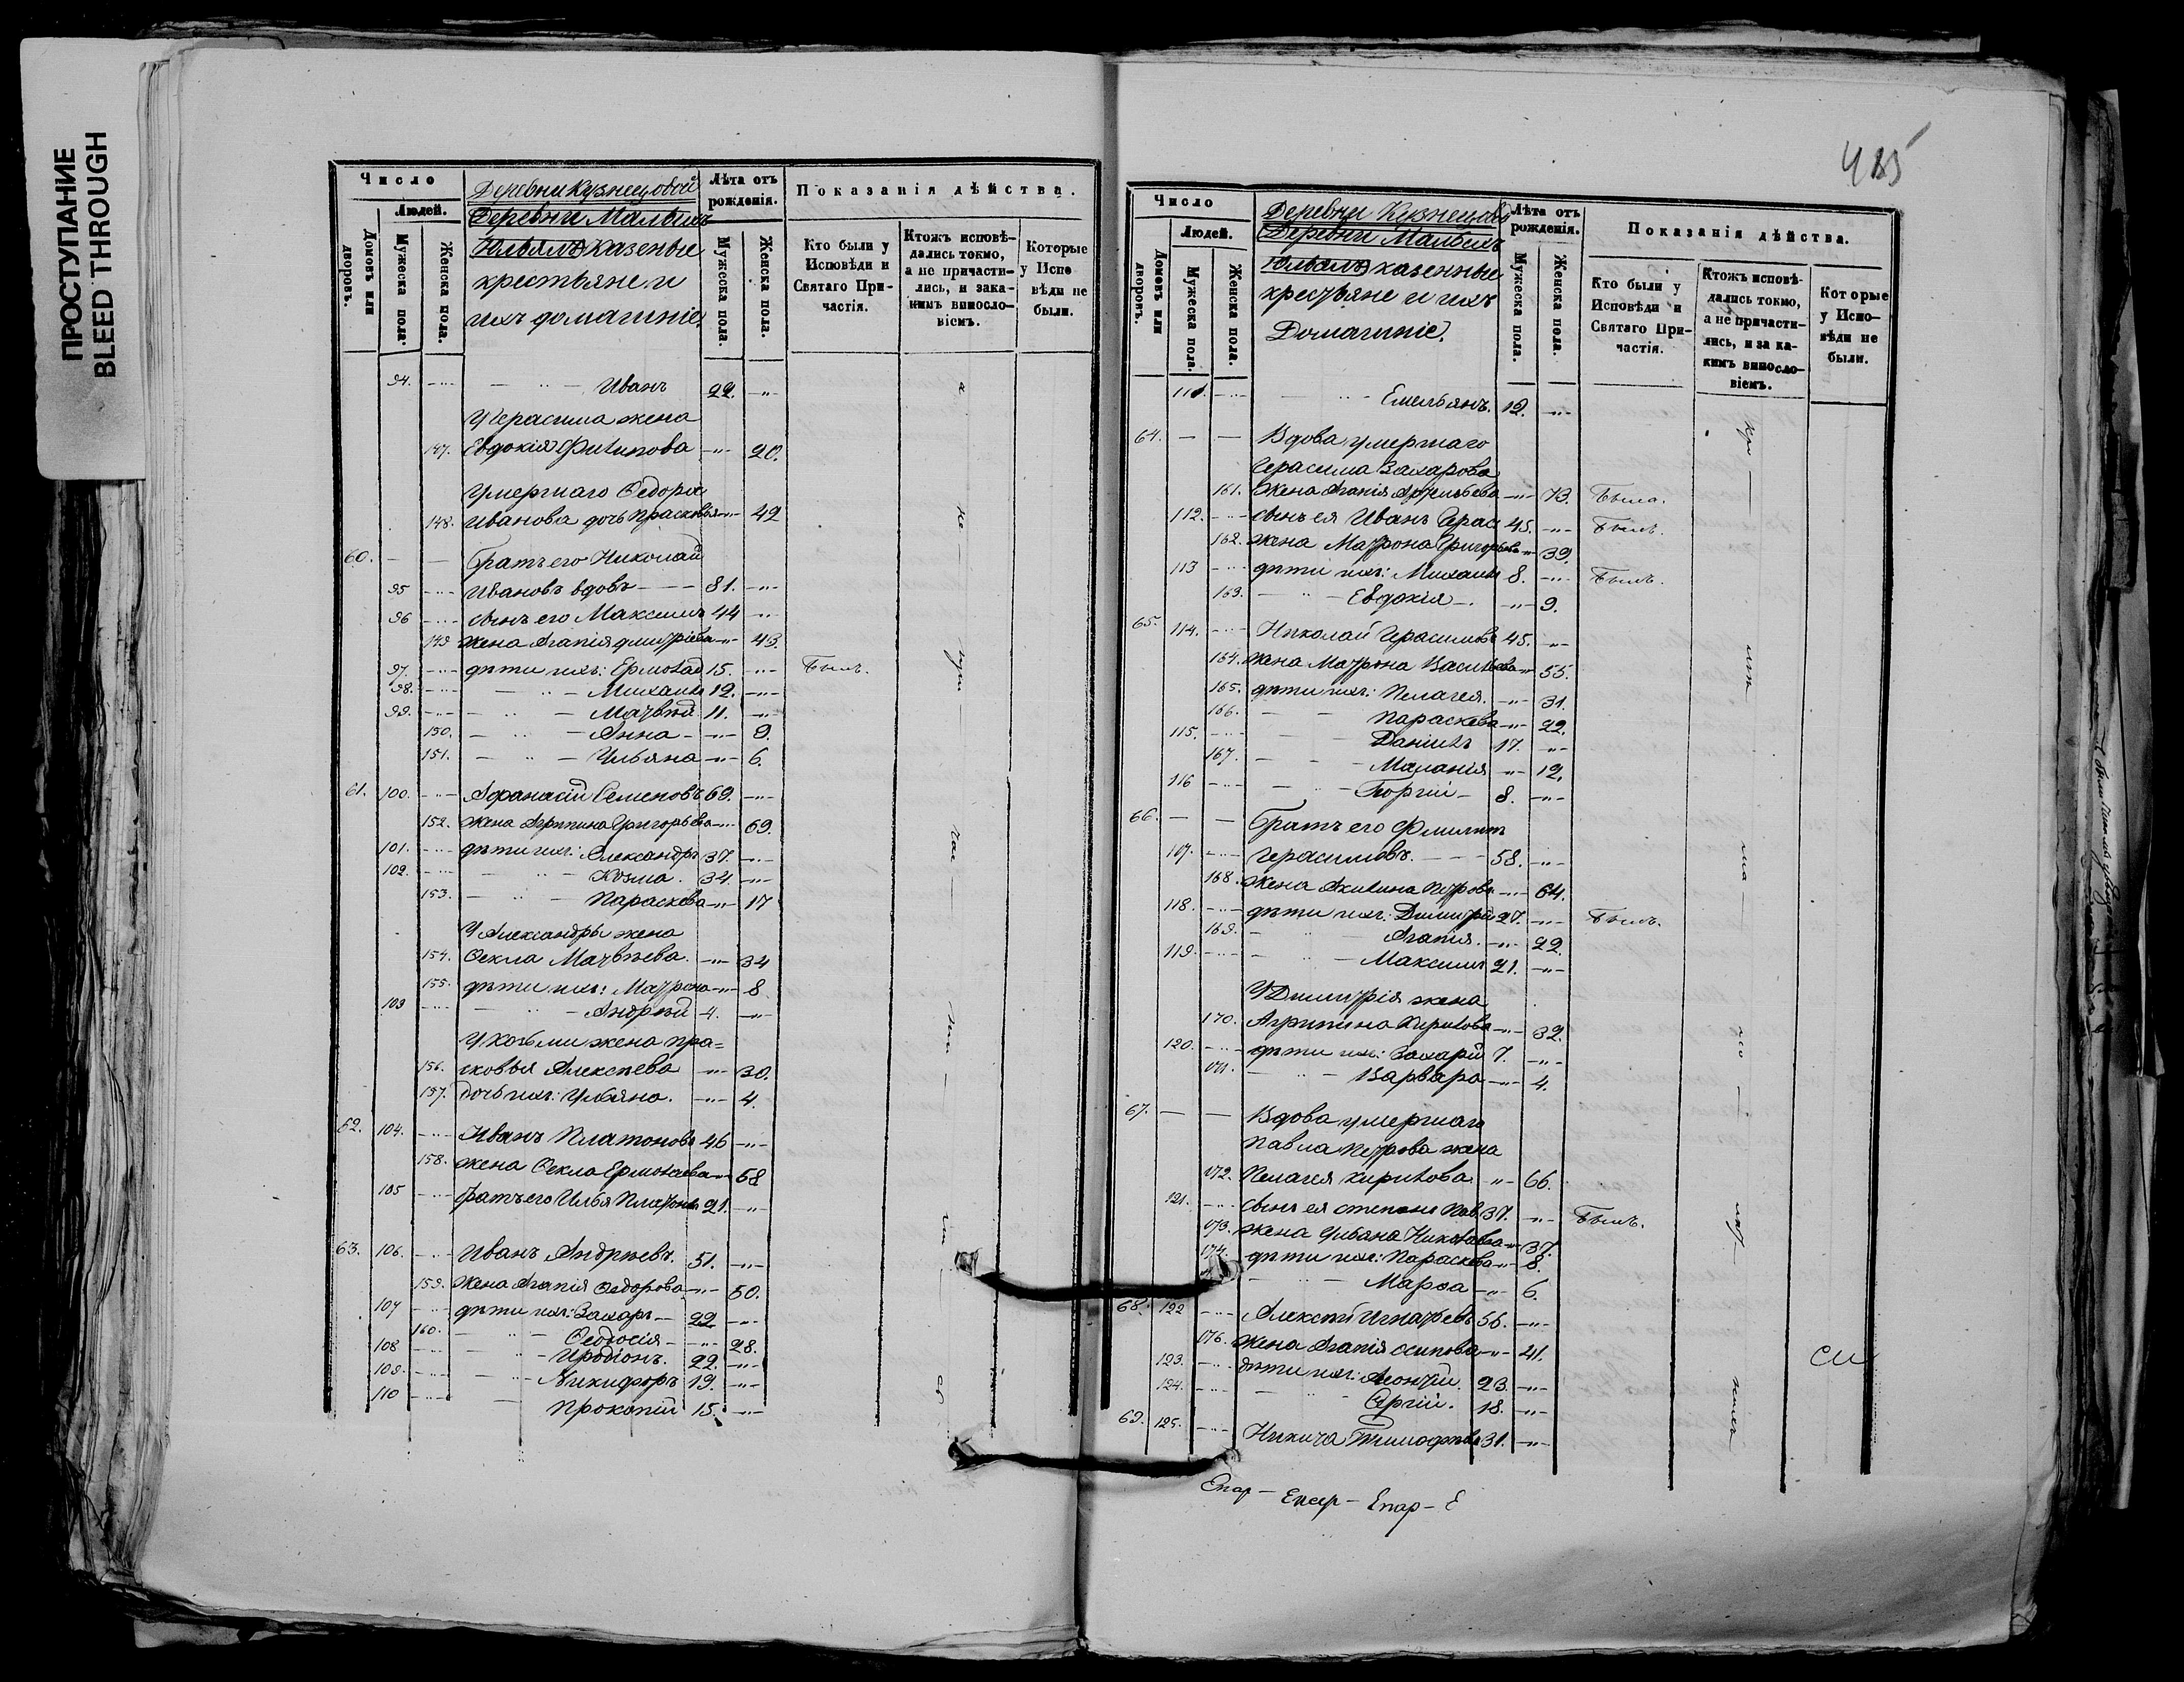 ПРОСТУПАНИЕ
BLEED THROUGH
Число
Людей.
Домовъ или дворовъ.
Мужеска пола.
Женска пола.
Деревни Кузнецовой
Деревни Малыхъ
Юльялъ казеные
крестьяне и
ихъ домашніе.
Лѣта отъ рожденія.
Мужеска пола.
Женска пола.
Показанія дѣйства.
Кто были у Исповѣди и Святаго Причастія.
Ктожъ исповѣдались токмо, а не причастились, и закакимъ винословіемъ.
Которые у Исповѣди не были.
94. Иванъ 22.
У Герасима жена
147. Евдокія Филипова 20.
Умершаго Ѳедора
148. Иванова дочь Прасковья 42
60. Братъ его Николай
95 Ивановъ вдовъ 81.
96 сынъ его Максимъ 44
149 жена Агапія Дмитріева 43.
97. дѣти ихъ: Ермолай 15. Былъ.
98. Михаилъ 12.
99. Матвѣй 11.
150. Анна 9.
151. Ульяна 6.
61. 100. Афанасій Семеновъ 69.
152. жена Агрипина Григорьева 69.
101. дѣти ихъ: Александръ 37.
102. Козма. 34.
153. Параскева 17
У Александры жена
154. Ѳекла Матвѣева. 34
155. дѣти ихъ: Матрона 8
103 Андрѣй 4.
У Козьмы жена Пра=
156. сковья Алексѣева 30.
157. дочь ихъ: Ульяна. 4.
62. 104. Иванъ Платоновъ 46
158. жена Ѳекла Ермолаева 58
105 братъ его Илья Платоновъ 21.
63. 106. Иванъ Андрѣевъ. 51.
159. Жена Агапія Ѳедорова 50.
107 дѣти ихъ: Захаръ 22
160. Ѳеодосія 28.
108 Иродіонъ. 22.
109. Никифоръ 19.
110 Прокопій 15.
485
Число
Людей.
Домовъ или дворовъ.
Мужеска пола.
Женска пола.
Деревни Кузнецовой
Деревни Малыхъ
Юльялъ казенные
крестьяне и ихъ
Домашніе.
Лѣта отъ рожденія.
Мужеска пола.
Женска пола.
Показанія дѣйства.
Кто были у Исповѣди и Святаго Причастія.
Ктожъ исповѣдались токмо, а не причастились, и за какимъ винословіемъ.
Которые у Исповѣди не были.
111. Емельянъ. 12.
64. Вдова умершаго
Герасима Захарова
161. жена Агапія Артемьева 73. Была.
112. сынъ ея Иванъ Герас 45. Былъ.
162. жена Матрона Григорьева 39.
113 дѣти ихъ: Михаилъ 8. Былъ.
163. Евдокія 9.
65. 114. Николай Герасимовъ 45.
164. жена Матрона Васильева 55.
165. дѣти ихъ: Пелагея. 31.
166. Параскева 22.
115. Даніилъ 17.
167. Маланія 12.
116 Георгій 8.
66. Братъ его Филипъ
117. Герасимовъ. 58.
168. жена Акилина Петрова 64.
118. дѣти ихъ: Димитрій 27. Былъ.
169. Агапія. 22.
119. Максимъ 21.
У Димитрія жена
170. Агрипина Кирилова 32.
120. дѣти ихъ: Захарій 7.
171. Варвара 4.
67. Вдова умершаго
Павла Петрова жена
172. Пелагея Кирилова 66.
121. сынъ ея Степанъ Пав 37. Былъ.
173. жена Ульяна Николаева 37.
174. дѣти ихъ: Параскева 8.
Марѳа 6.
68. 122 Алексѣй Игнатьевъ 56.
176. жена Агапія Осипова 41.
123. дѣти ихъ: Леонтій. 23.
124. Сергій. 18.
69. 125. Никита Тимофѣевъ 31.
Епар - Епар - Епар - Е